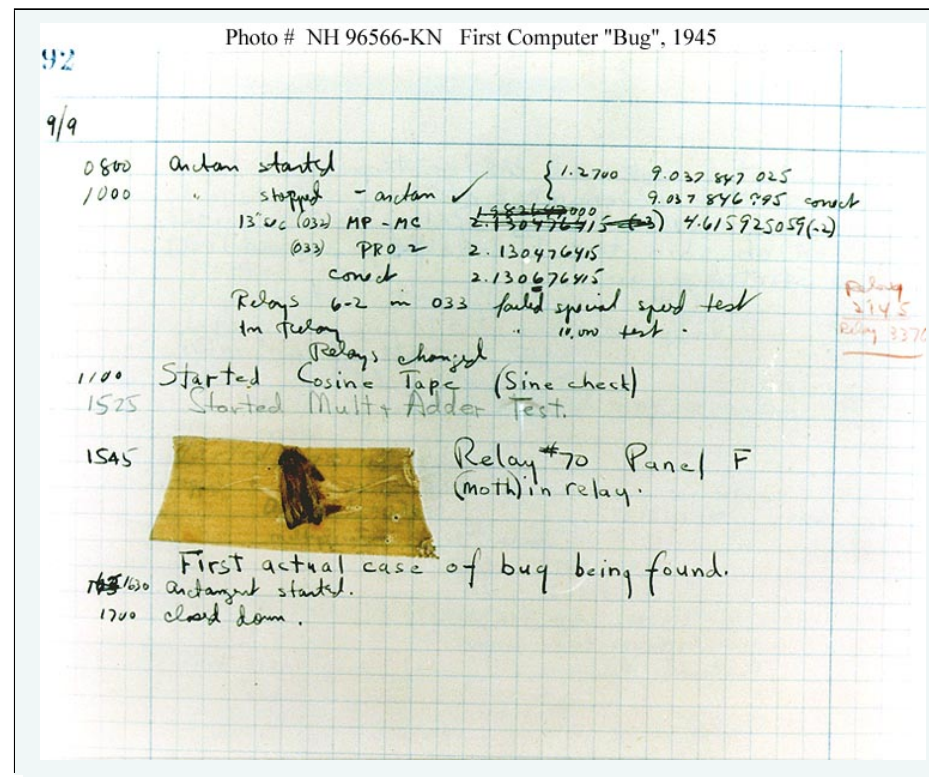 Photo # NH 96566-KN First Computer "Bug", 1945
92
9/9
0800 Antan started
1000 " stopped - antan ✓ { 1.2700 9.037 847 025
9.037 846 995 conect
13" uc (032) MP - MC 2.130476415 (-3) 4.615925059(-2)
(033) PRO 2 2.130476415
conect 2.130676415
Relays 6-2 in 033 failed special speed test
In Relay " 10,000 test .
Relay
2145
Relay 3370
Relays changed
1100 Started Cosine Tape (Sine check)
1525 Started Mult + Adder Test.
1545 Relay #70 Panel F
(moth) in relay.
First actual case of bug being found.
1630 antangent started.
1700 closed down .